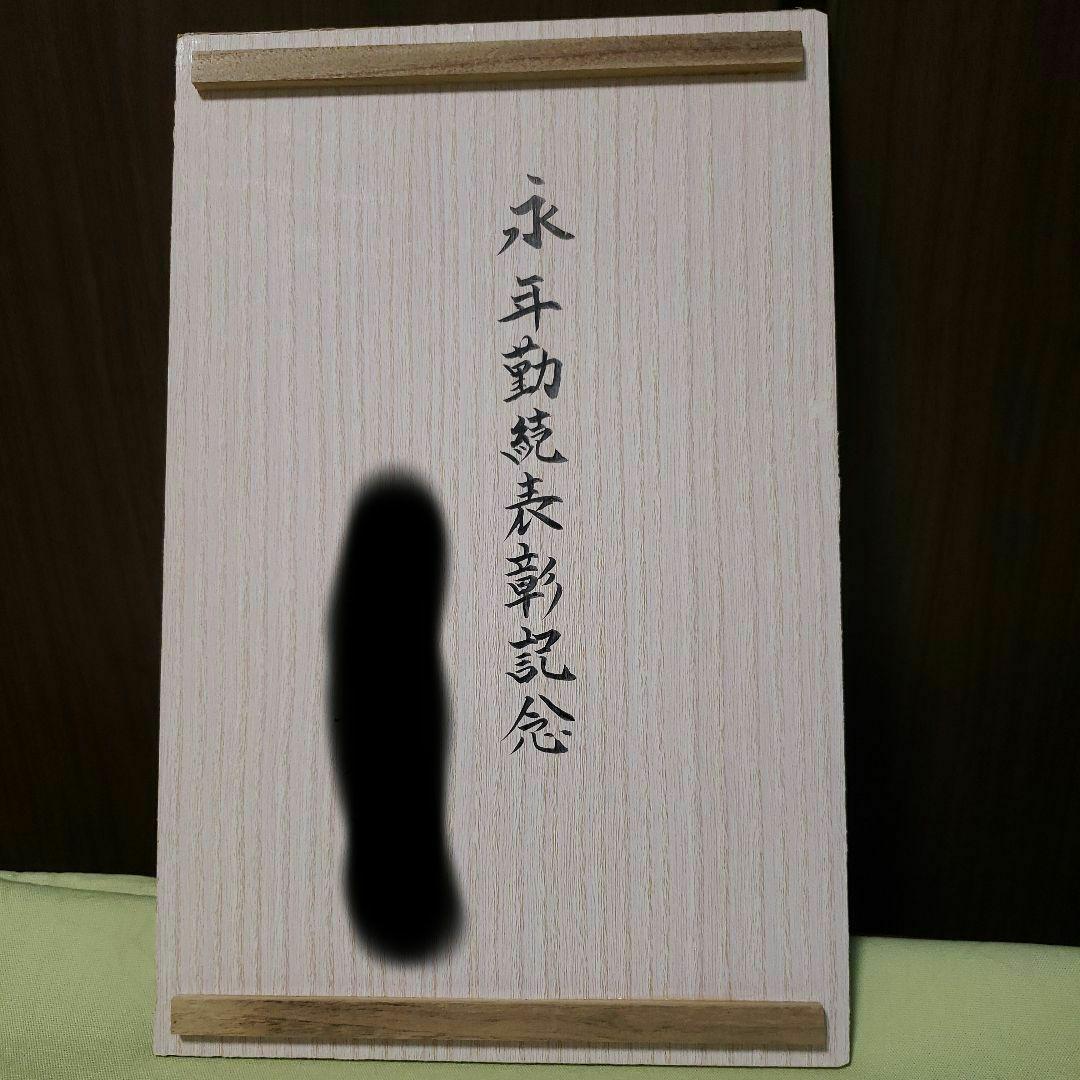 永年勤続表彰記念